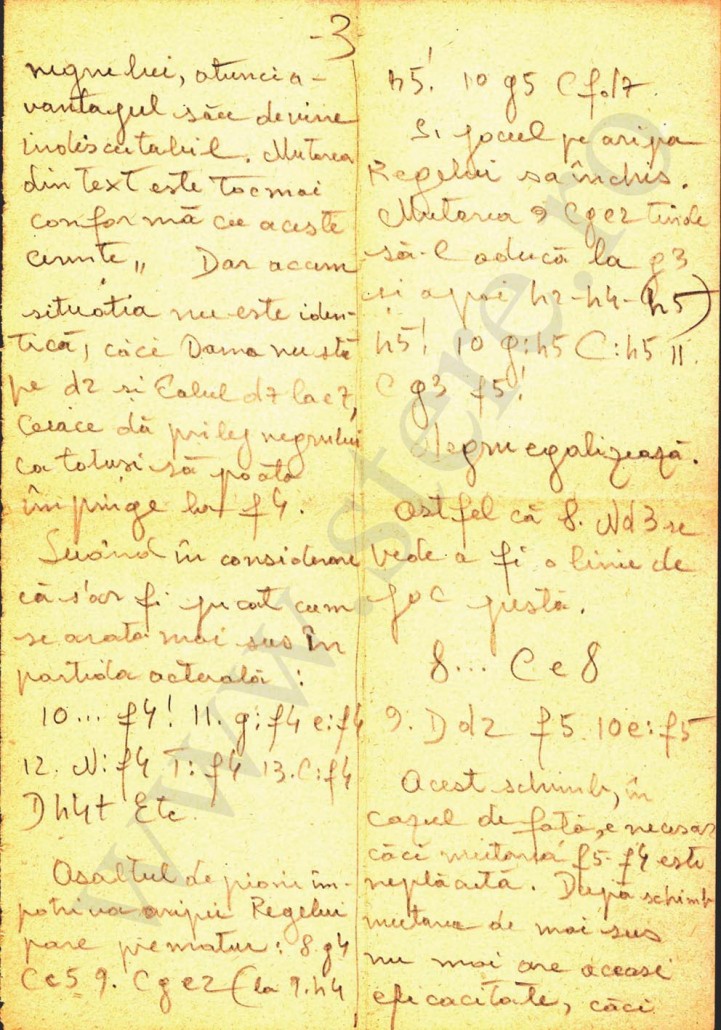 -3
negrului, atunci a-
vantagul său devine
indiscutabil. Mutarea
din text este tocmai
conformă cu aceste
cerinte„ Dar acum
situatia nu este iden-
tică, căci Dama nu stă
pe d2 si Calul d7 la e7,
ceiace dă prilej negrului
ca totusi să poată
împinge la f4.
Luând în considerare
că s'ar fi jucat cum
se arată mai sus în
partida actuală:
10... f4! 11. g:f4 e:f4
12. N:f4 T:f4 13. C:f4
Dh4+ Etc
Asaltul de pioni îm-
potriva aripii Regelui
pare prematur: 8. g4
Ce5 9. Cge2 (la 9. h4
h5! 10 g5 Cfd7.
Si jocul pe aripa
Regelui sa închis.
Mutarea 9 Cge2 tinde
să-l aducă la g3
si apoi h2-h4-h5)
h5! 10 g:h5 C:h5 11.
Cg3 f5!
Negru egalizează.
Astfel că 8. Nd3 se
vede a fi o linie de
joc justă.
8... Ce8
9. Dd2 f5 10 e:f5
Acest schimb, în
cazul de fată, e necesar
căci mutarea f5-f4 este
neplăcută. După schimb
mutarea de mai sus
nu mai are aceasi
eficacitate, căci
www.stere.ro